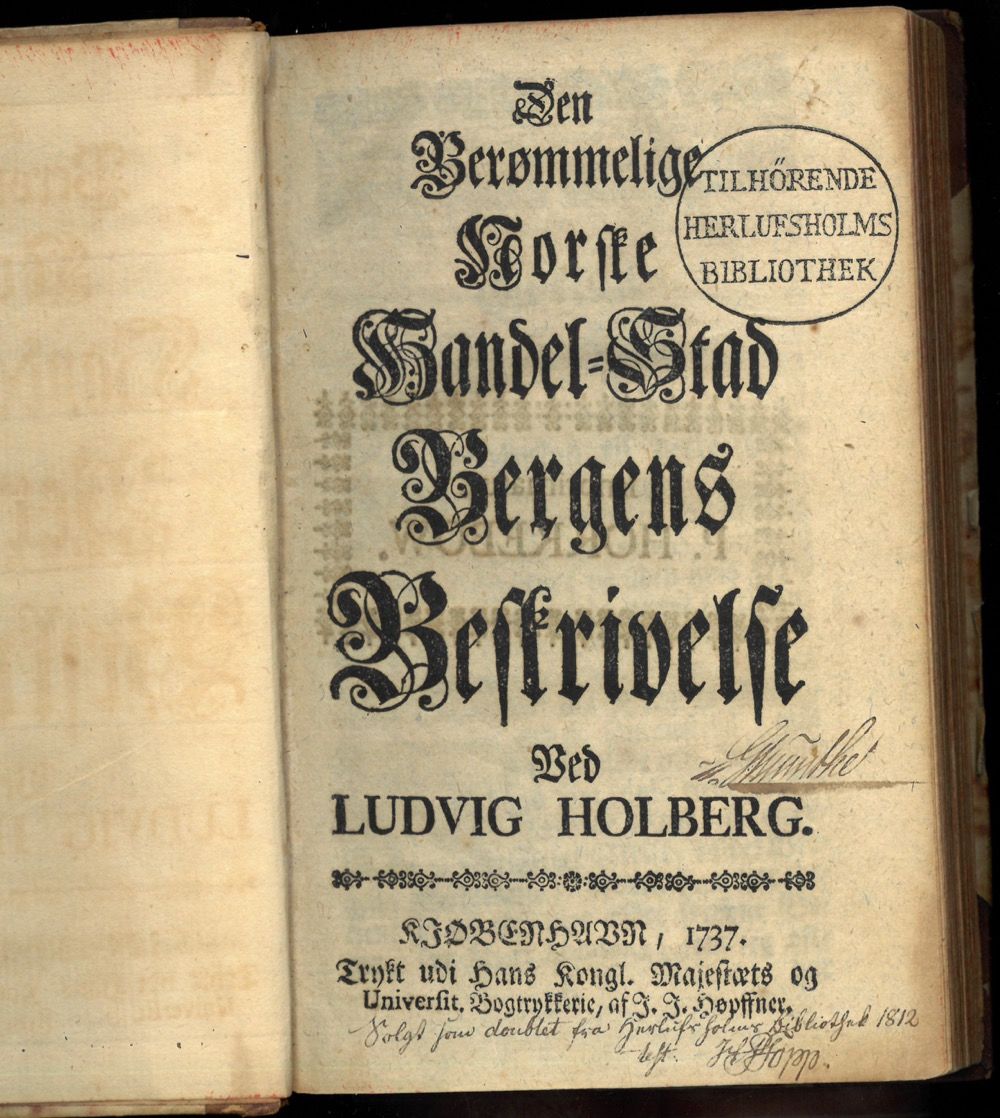 Den
Berømmelige
Norske
Handel=Stad
Bergens
Beskrivelse
Ved
LUDVIG HOLBERG.
KJØBENHAVN, 1737.
Trykt udi Hans Kongl. Majestæts og
Universit. Bogtrykkerie, af J. J. Høpffner.
TILHÖRENDE
HERLUFSHOLMS
BIBLIOTHEK
Solgt som doublet fra Herlufsholms Bibliothek 1812